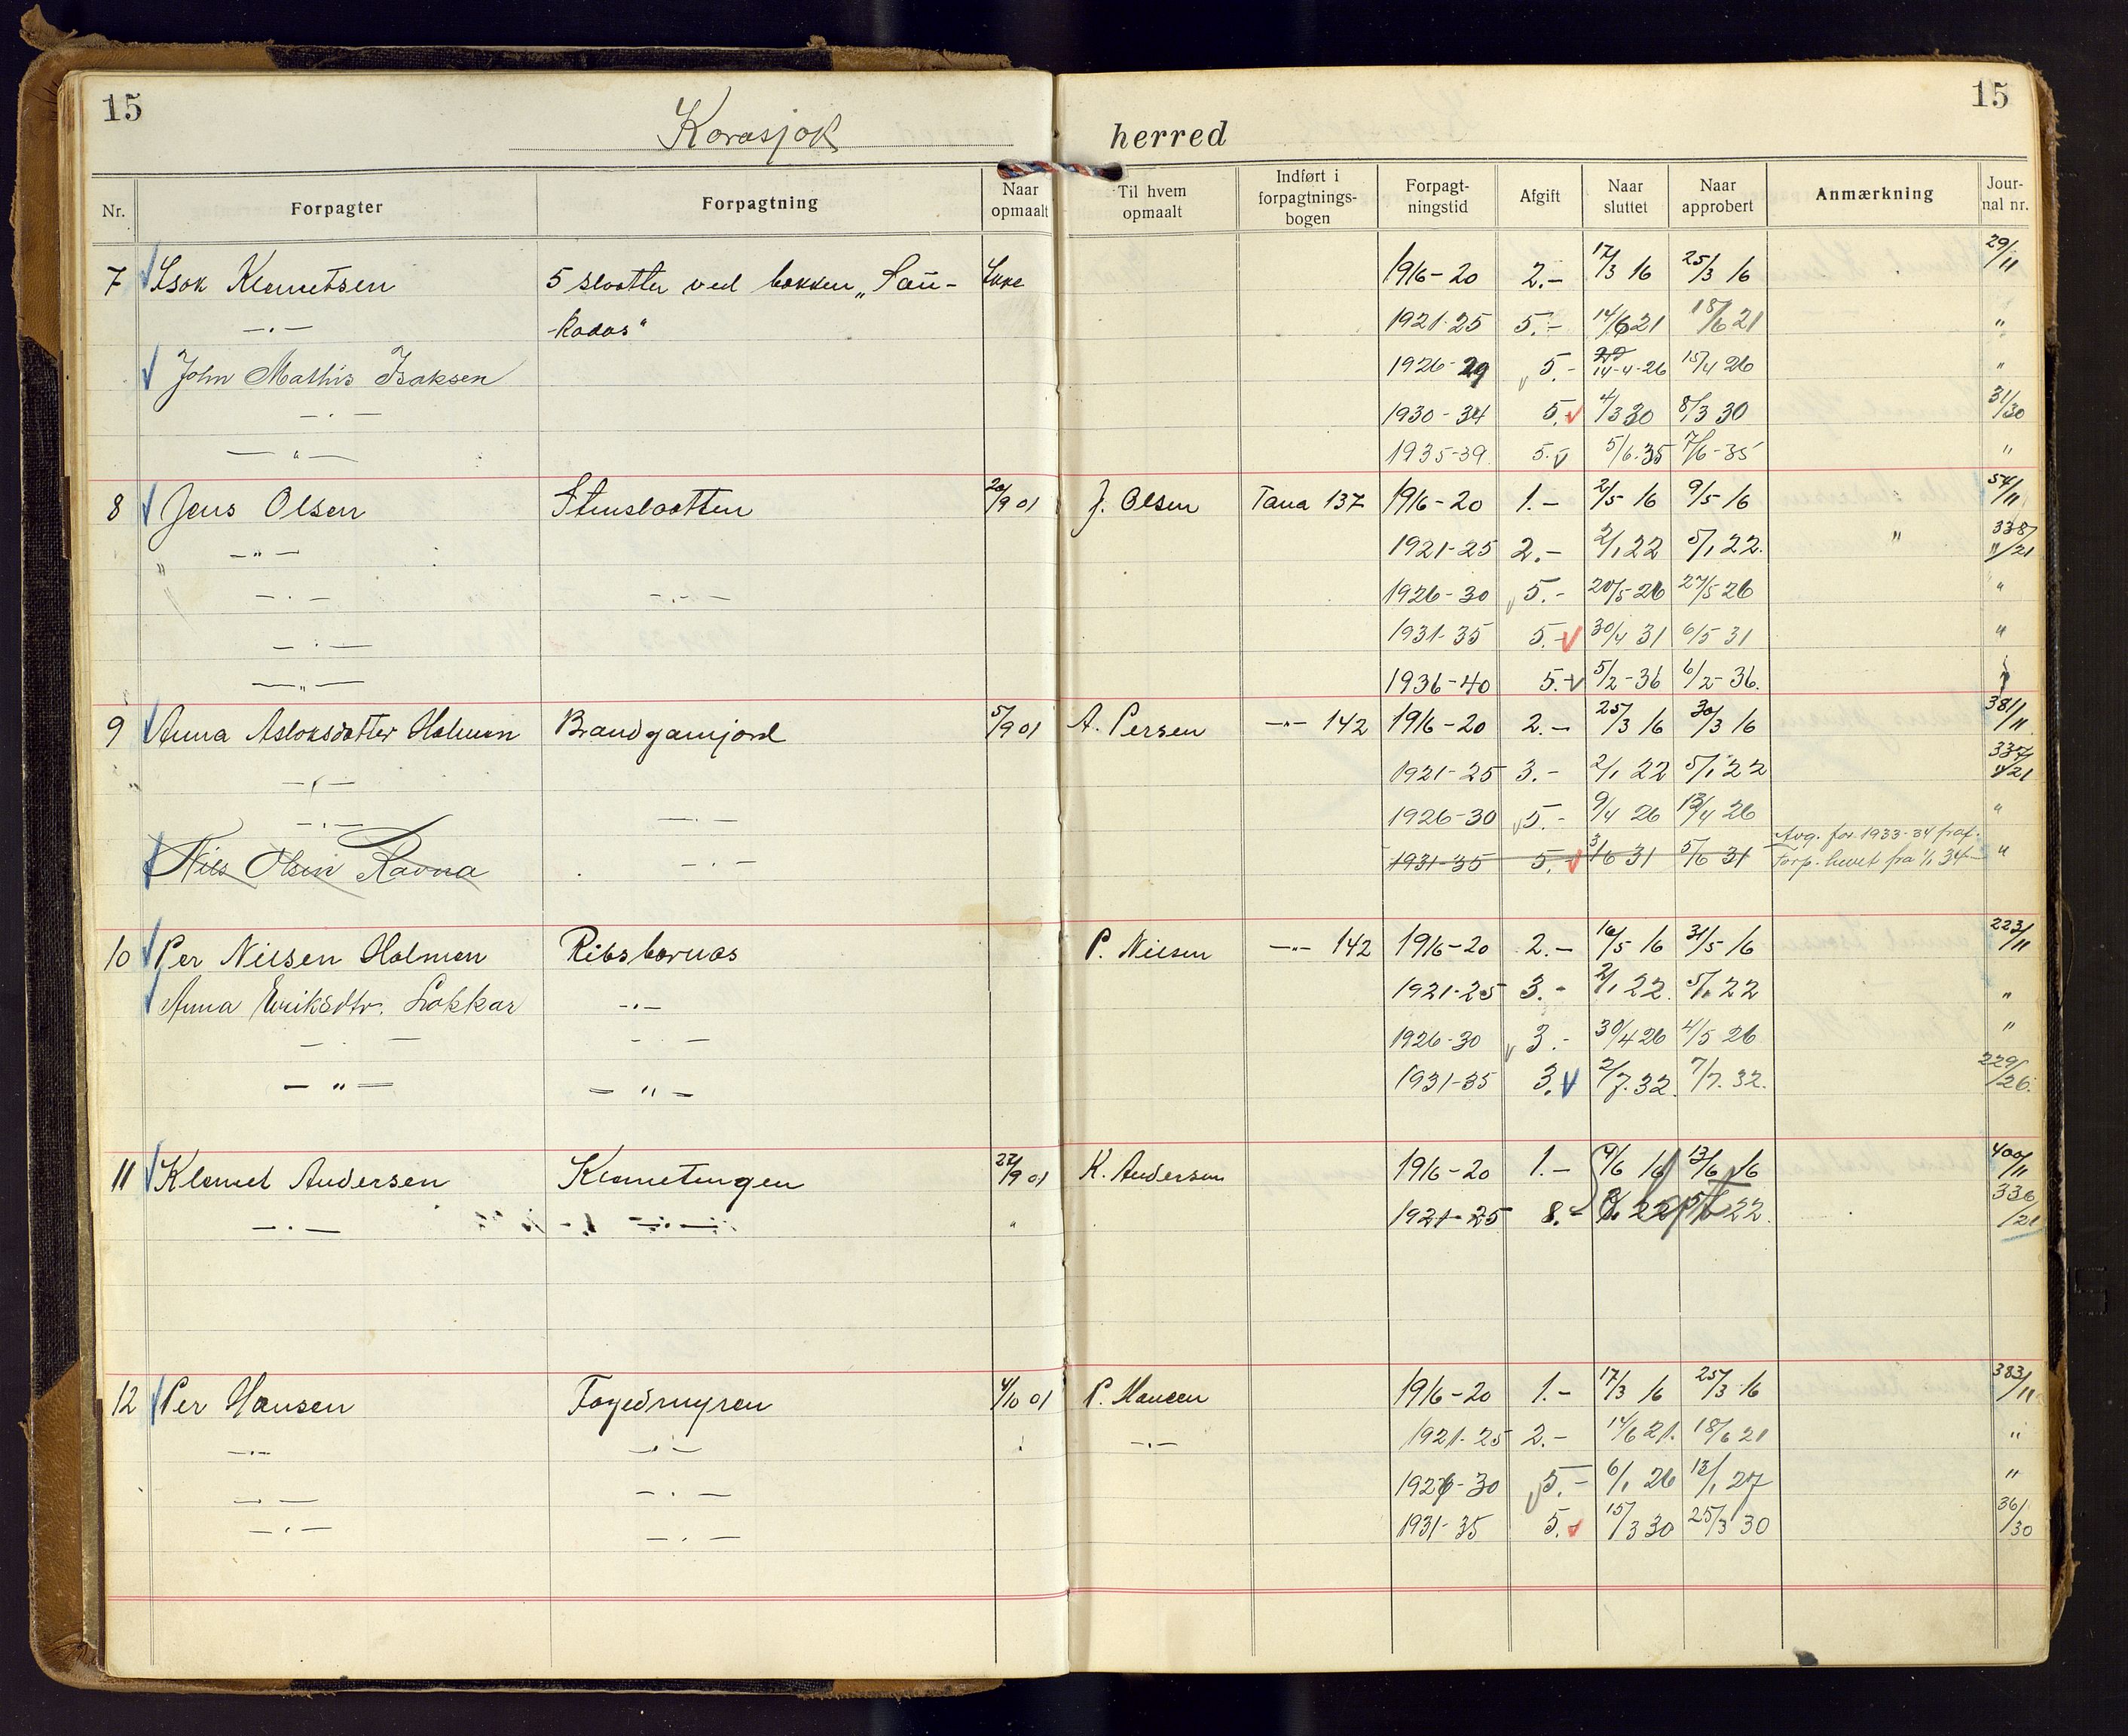 15
15
Karasjok herred
Nr. Forpagter Forpagtning Naar opmaalt Til hvem opmaalt Indført i forpagtnings-bogen Forpagt-ningstid Afgift Naar sluttet Naar approbert Anmærkning Jour-nal nr.
7 Isak Klemetsen 5 slaatter ved bakken „Sau- Ikke 1916-20 2.- 17/3 16 25/3 16 29/11
—"— kadas" 1921-25 5.- 14/6 21 18/6 21 "
John Mathis Isaksen 1926-29 5.- 14-4-26 15/4 26 "
—"— 1930-34 5. 4/3 30 8/3 30 31/30
—"— 1935-39 5. 5/6-35 7/6-35 "
8 Jens Olsen Stenslaatten 20/9 01 J. Olsen Tana 137 1916-20 1.- 2/5 16 9/5 16 54/11
" —"— 1921-25 2.- 2/1 22 5/1 22. " 338/21
—"— —"— 1926-30 5.- 20/5-26 27/5 26 "
—"— 1931-35 5.- 30/4 31 6/5 31 "
—"— 1936-40 5.- 5/2-36 6/2-36.
9 Anna Aslaksdatter Halmen Brandgamjord 5/9 01 A. Persen —"— 142 1916-20 2.- 25/3 16 30/3 16 381/11
" —"— 1921-25 3.- 2/1 22 5/1 22 337/21
—"— —"— 1926-30 5.- 9/4 26 13/4 26 "
Nils Olsen Ravna —"— 1931-35 5.- 3/6 31 5/6 31 Avg. for 1933-34 fraf. "
Forp. hevet fra 1/1 34
10 Per Nilsen Halmen Ribsbarnas P. Nilsen —"— 142 1916-20 2.- 16/5 16 31/5 16 223/11
Anna Eriksdtr. Lakkar —"— 1921-25 3.- 2/1 22. 5/1 22 "
—"— —"— 1926-30 3.- 30/4 26 4/5 26 "
—"— —"— 1931-35 3. 2/7.32. 7/7.32. 229/26.
11 Klemet Andersen Klemetengen 27/9 01 K. Andersen 1916-20 1.- 9/6 16 13/6 16 400/11
—"— —"— " 1921-25 8.- 22 22. 336/21
12 Per Hansen Fogedmyren 4/10 01 P. Hansen 1916-20 1.- 17/3 16 25/3 16 383/11
—"— —"— —"— 1921-25 2.- 14/6 21. 18/6 21 "
—"— —"— 1926-30 5.- 6/1 26 12/1 27 "
—"— —"— 1931-35 5. 15/3 30 25/3 30 36/30